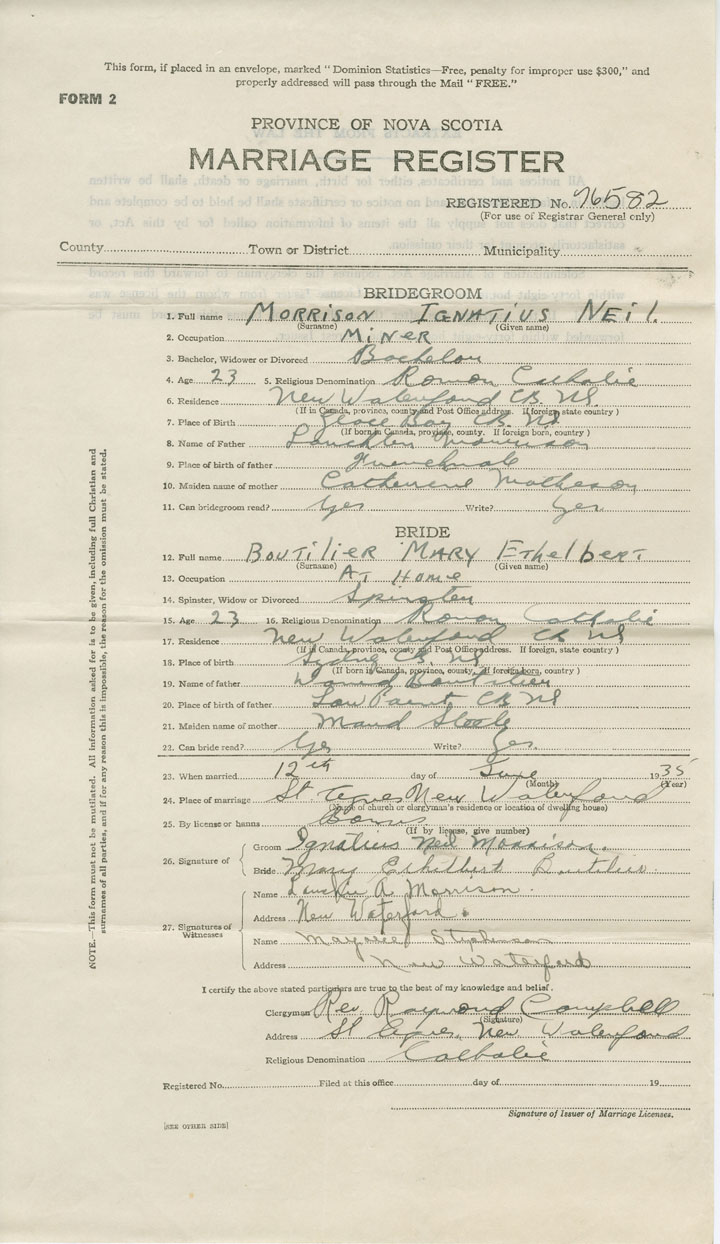 This form, if placed in an envelope, marked "Dominion Statistics—Free, penalty for improper use $300," and
properly addressed will pass through the Mail "FREE."
FORM 2
PROVINCE OF NOVA SCOTIA
MARRIAGE REGISTER
REGISTERED No. 76582
(For use of Registrar General only)
County Town or District Municipality
BRIDEGROOM
1. Full name MORRISON IGNATIUS NEIL.
(Surname) (Given name)
2. Occupation MINER
3. Bachelor, Widower or Divorced Bachelor
4. Age 23 5. Religious Denomination Roman Catholic
6. Residence New Waterford CB NS
(If in Canada, province, county and Post Office address. If foreign state country)
7. Place of Birth Glace Bay CB. NS
(If born in Canada, province, county. If foreign born, country)
8. Name of Father Lauchlin Morrison
9. Place of birth of father
10. Maiden name of mother Catherine Matheson
11. Can bridegroom read? Yes Write? Yes
BRIDE
12. Full name BOUTILIER MARY EThELBERT
(Surname) (Given name)
13. Occupation AT HOME
14. Spinster, Widow or Divorced Spinster
15. Age 23 16. Religious Denomination Roman Catholic
17. Residence New Waterford CB NS
(If in Canada, province, county and Post Office address. If foreign, state country)
18. Place of birth Sydney CB. NS
(If born in Canada, province, county, If foreign born, country)
19. Name of father Boutilier
20. Place of birth of father Low Point CB NS
21. Maiden name of mother Maud Steele
22. Can bride read? Yes Write? Yes.
23. When married 12th day of June 1935
(Month) (Year)
24. Place of marriage St Agnes New Waterford
(Name of church or clergyman's residence or location of dwelling house)
25. By license or banns Banns
(If by license, give number)
26. Signature of
Groom Ignatius Neil Morrison.
Bride Mary Ethelbert Boutilier
27. Signatures of Witnesses
Name Lauchie A. Morrison.
Address New Waterford.
Name Marjorie Stephenson
Address New Waterford
I certify the above stated particulars are true to the best of my knowledge and belief.
Clergyman Rev Raymond Campbell
(Signature)
Address St Agnes, New Waterford
Religious Denomination Catholic
Registered No. Filed at this office day of 19
Signature of Issuer of Marriage Licenses.
[SEE OTHER SIDE]
NOTE.—This form must not be mutilated. All information asked for is to be given, including full Christian and
surnames of all parties, and if for any reason this is impossible, the reason for the omission must be stated.